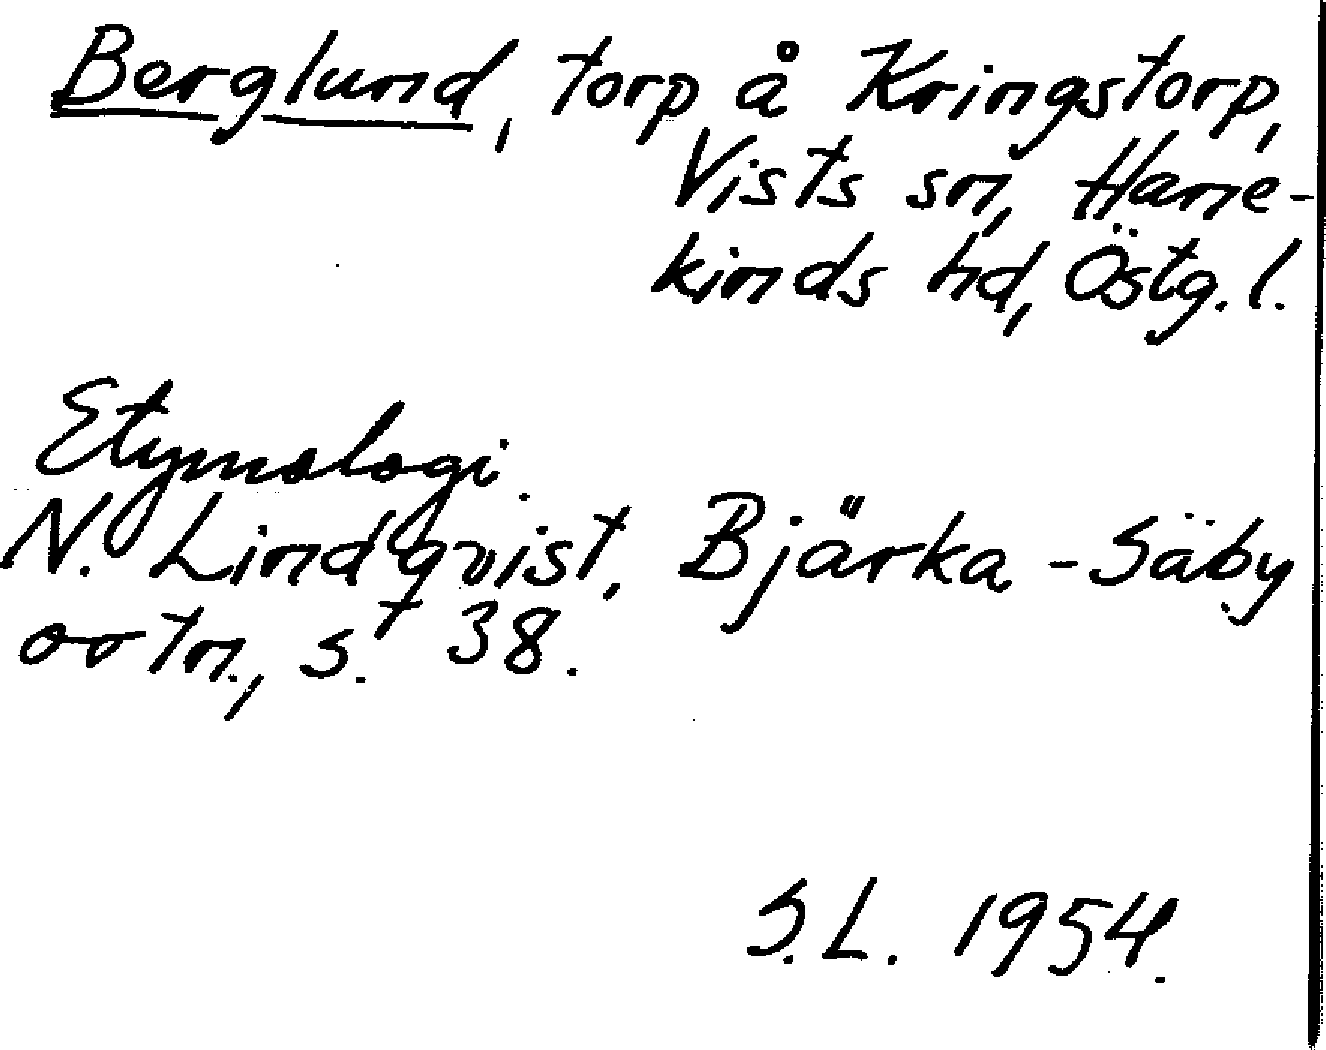 Berglund, torp å Kringstorp,
Vists sn, Hane-
kinds hd, Östg. l.
Etymologi.
N. Lindqvist, Bjärka-Säby
ortn., s. 38.
S.L. 1954.